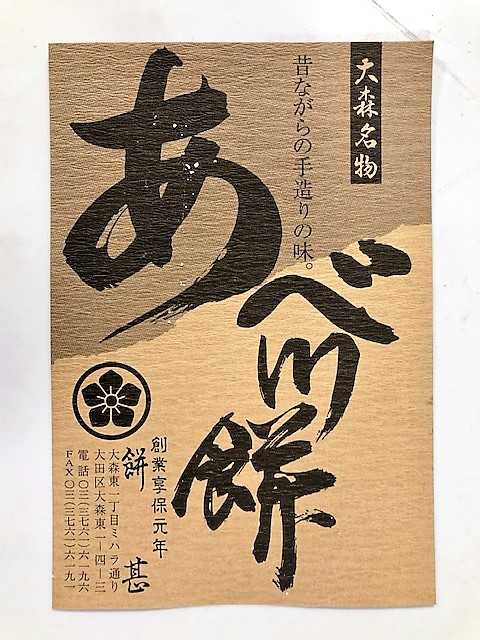 大森名物
昔ながらの手造りの味。
あべ川餅
創業享保元年
餅甚
大森東一丁目ミハラ通り
大田区大森東一ー四ー三
電話〇三(三七六一)六一九六
FAX〇三(三七六一)六一九一